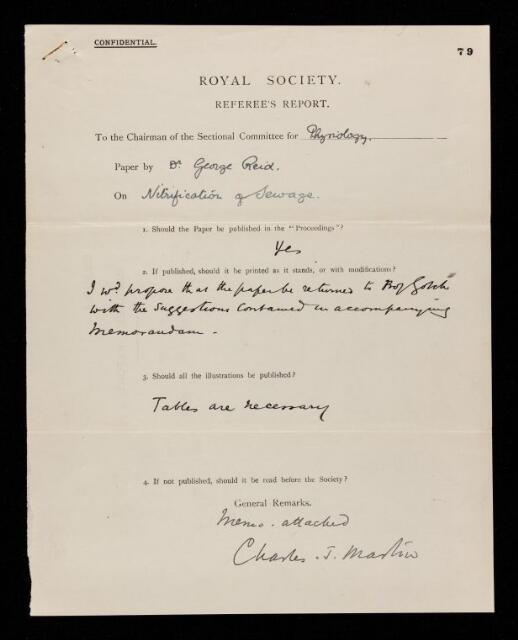 CONFIDENTIAL.
79
ROYAL SOCIETY.
REFEREE'S REPORT.
To the Chairman of the Sectional Committee for Physiology.
Paper by Dr George Reid.
On Nitrification of Sewage.
1. Should the Paper be published in the "Proceedings"?
Yes
2. If published, should it be printed as it stands, or with modifications?
I wd. propose that the paper be returned to Prof Gotch
with the suggestions contained in accompanying
memorandum -
3. Should all the illustrations be published?
Tables are necessary
4. If not published, should it be read before the Society?
General Remarks.
Memo. attached
Charles J. Martin